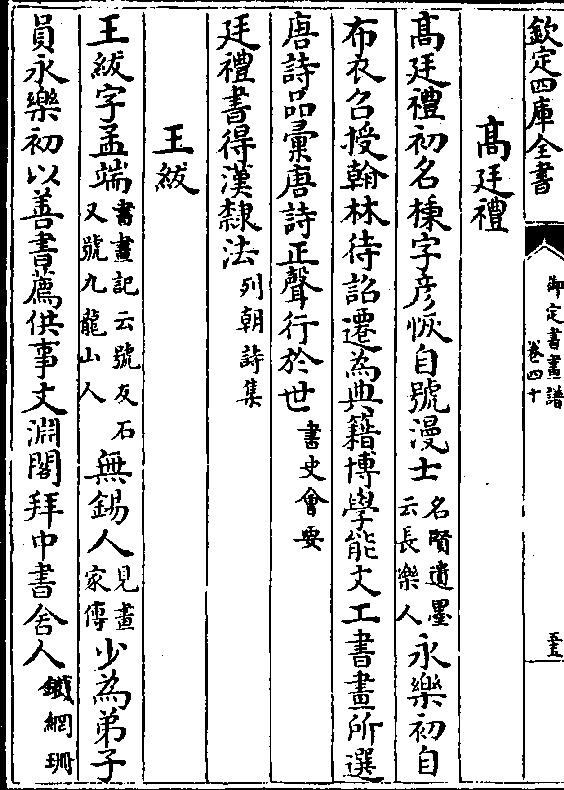 欽定四庫全書
御定書畫譜
卷四十
五
高廷禮
高廷禮初名棟字彦恢自號漫士名賢遺墨云長樂人永樂初自
布衣召授翰林待詔遷為典籍博學能文工書畫所選
唐詩品彚唐詩正聲行於世書史會要
廷禮書得漢隸法列朝詩集
王紱
王紱字孟端書畫記云號友石又號九龍山人無錫人見畫家傳少為弟子
員永樂初以善書薦供事文淵閣拜中書舍人鐵網珊